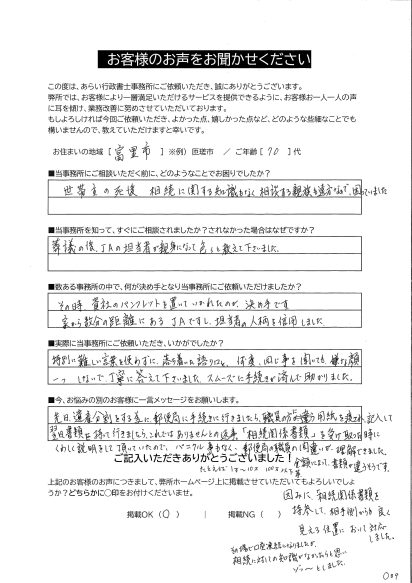 お客様のお声をお聞かせください
この度は、あらい行政書士事務所にご依頼いただき、誠にありがとうございます。
弊所では、お客様により一層満足いただけるサービスを提供できるように、お客様お一人一人の声
に耳を傾け、業務改善に努めていただいております。
もしよろしければ今回ご依頼いただき、よかった点、嬉しかった点など、どのような些細なことでも
構いませんので、教えていただけますと幸いです。
お住まいの地域 [ 富里市 ] ※例）匝瑳市 / ご年齢 [ 70 ] 代
■当事務所にご相談いただく前に、どのようなことでお困りでしたか？
世帯主の死後 相続に関する知識もなく相談する親族も遠方なので、困っていました
■当事務所を知って、すぐにご相談されましたか？されなかった場合はなぜですか？
葬儀の後、JAの担当者が親身になって色々と教えて下さいました。
■数ある事務所の中で、何が決め手となり当事務所にご依頼いただけましたか？
その時 貴社のパンフレットを置いていかれたのが、決め手です
家から数分の距離にある JAですし、担当者の人柄を信用しました。
■実際に当事務所にご依頼いただき、いかがでしたか？
特別に難しい言葉を使わずに、落ち着いた語り口と、何度、同じ事を聞いても、嫌な顔
一つ しないで、丁寧に答えて下さいました スムーズに手続きが済んで助かりました。
■今、お悩みの別のお客様に一言メッセージをお願いします。
先日、遺産分割をする為に、郵便局に手続きに行きましたら、職員の方が違う用紙を渡され、記入して
翌日書類を持って行きましたら、これではありませんとの返事「相続関係書類」を受け取る時に
くわしく説明をして頂いていたので、パニクル事もなく、郵便局の職員の間違いが、理解できました。
ご記入いただきありがとうございました！
金額によって、書類が違うそうです。
上記のお客様のお声につきまして、弊所ホームページ上に掲載させていただいてもよろしいでしょ
うか？どちらかに○印をお付けくださいませ。
掲載OK ( ○ ) 掲載NG ( )
因みに、相続関係書類を
持参して、相手側からも良く
見える位置において対応
しました。
相続に対しての知識がなかったらと思い
ゾーッとしました。